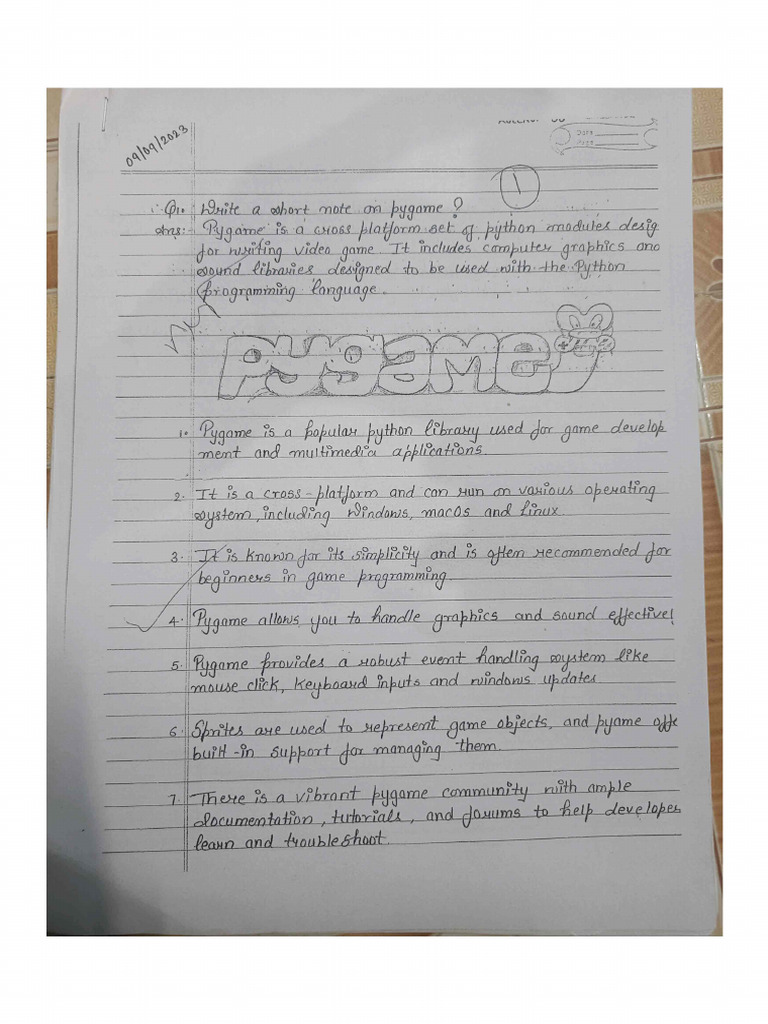 09/09/2023
Date
Page
1
Q1. Write a short note on pygame?
Ans:- Pygame is a cross platform set of python modules desig
for writing video game. It includes computer graphics and
sound libraries designed to be used with the Python
programming language.
pygame
1. Pygame is a popular python library used for game develop
ment and multimedia applications
2. It is a cross-platform and can run on various operating
system, including windows, macOs and Linux.
3. It is known for its simplicity and is often recommended for
beginners in game programming.
4. Pygame allows you to handle graphics and sound effectivel
5. Pygame provides a robust event handling system like
mouse click, keyboard inputs and windows updates
6. Sprites are used to represent game objects, and pyame offe
built-in support for managing them.
7. There is a vibrant pygame community with ample
documentation, tutorials, and forums to help developes
learn and troubleshoot.